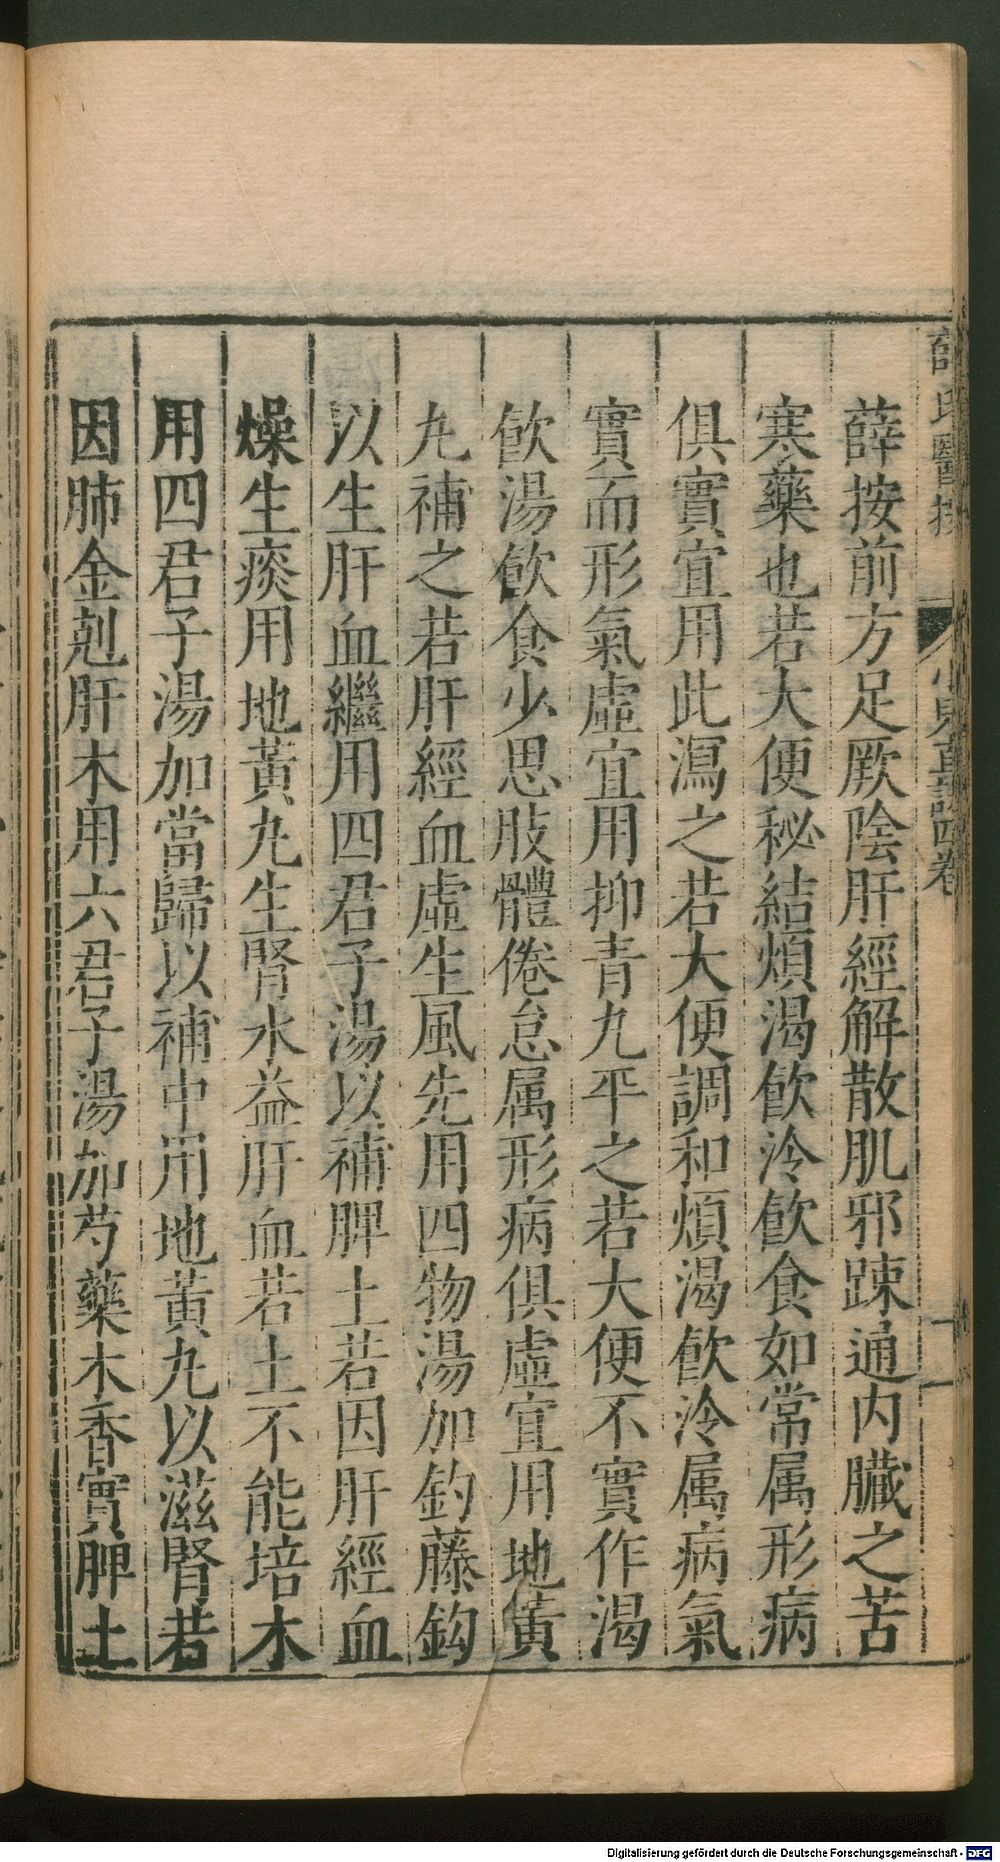 薛按前方足厥陰肝經解散肌邪踈通内臟之苦
寒藥也若大便秘結煩渴飲冷飲食如常属形病
俱實宜用此瀉之若大便調和煩渴飲冷属病氣
實而形氣虛宜用抑青丸平之若大便不實作渴
飲湯飲食少思肢體倦怠属形病俱虛宜用地黃
丸補之若肝經血虛生風先用四物湯加釣藤鈎
以生肝血繼用四君子湯以補脾土若因肝經血
燥生痰用地黃丸生腎水益肝血若土不能培木
用四君子湯加當歸以補中用地黃丸以滋腎若
因肺金剋肝木用六君子湯加芍藥木香實脾土
Digitalisierung gefördert durch die Deutsche Forschungsgemeinschaft - DFG